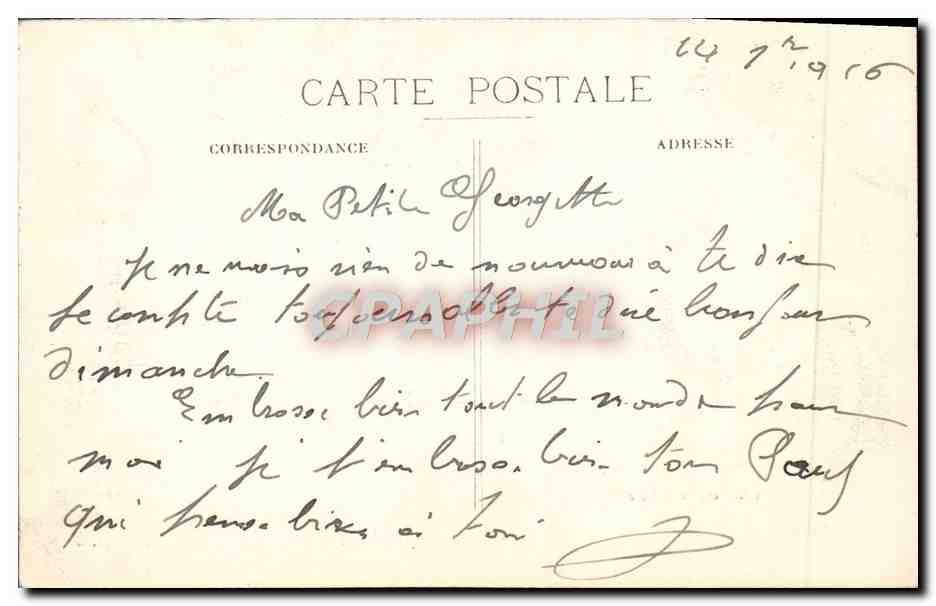 1916
CARTE POSTALE
CORRESPONDANCE
ADRESSE
Ma Petite Georgette
Je ne vois rien de nouveau à te dire
je compte toujours aller te dire bonjour
dimanche
Embrasse bien tout le monde pour
moi je t'embrasse bien ton Paul
qui pense bien à toi
CPAPHIL